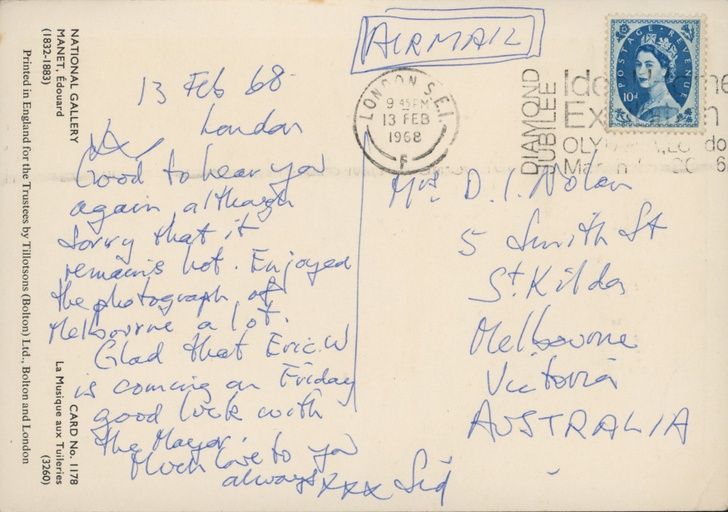 AIRMAIL
13 Feb 68
London
Good to hear you
again although
Sorry that it
remains hot. Enjoyed
the photograph of
Melbourne a lot.
Glad that Eric.W
is coming on Friday
good luck with
the Mayor.
Much love to you
always xxx Sid
LONDON S.E.1.
9 45 PM
13 FEB
1968
F
DIAMOND
JUBILEE
POSTAGE REVENUE
10d
Mrs D. I. Nolan
5 Smith St
St. Kilda
Melbourne
Victoria
AUSTRALIA
NATIONAL GALLERY
MANET, Edouard
(1832-1883)
CARD No. 1178
La Musique aux Tuileries
(3260)
Printed in England for the Trustees by Tillotsons (Bolton) Ltd., Bolton and London